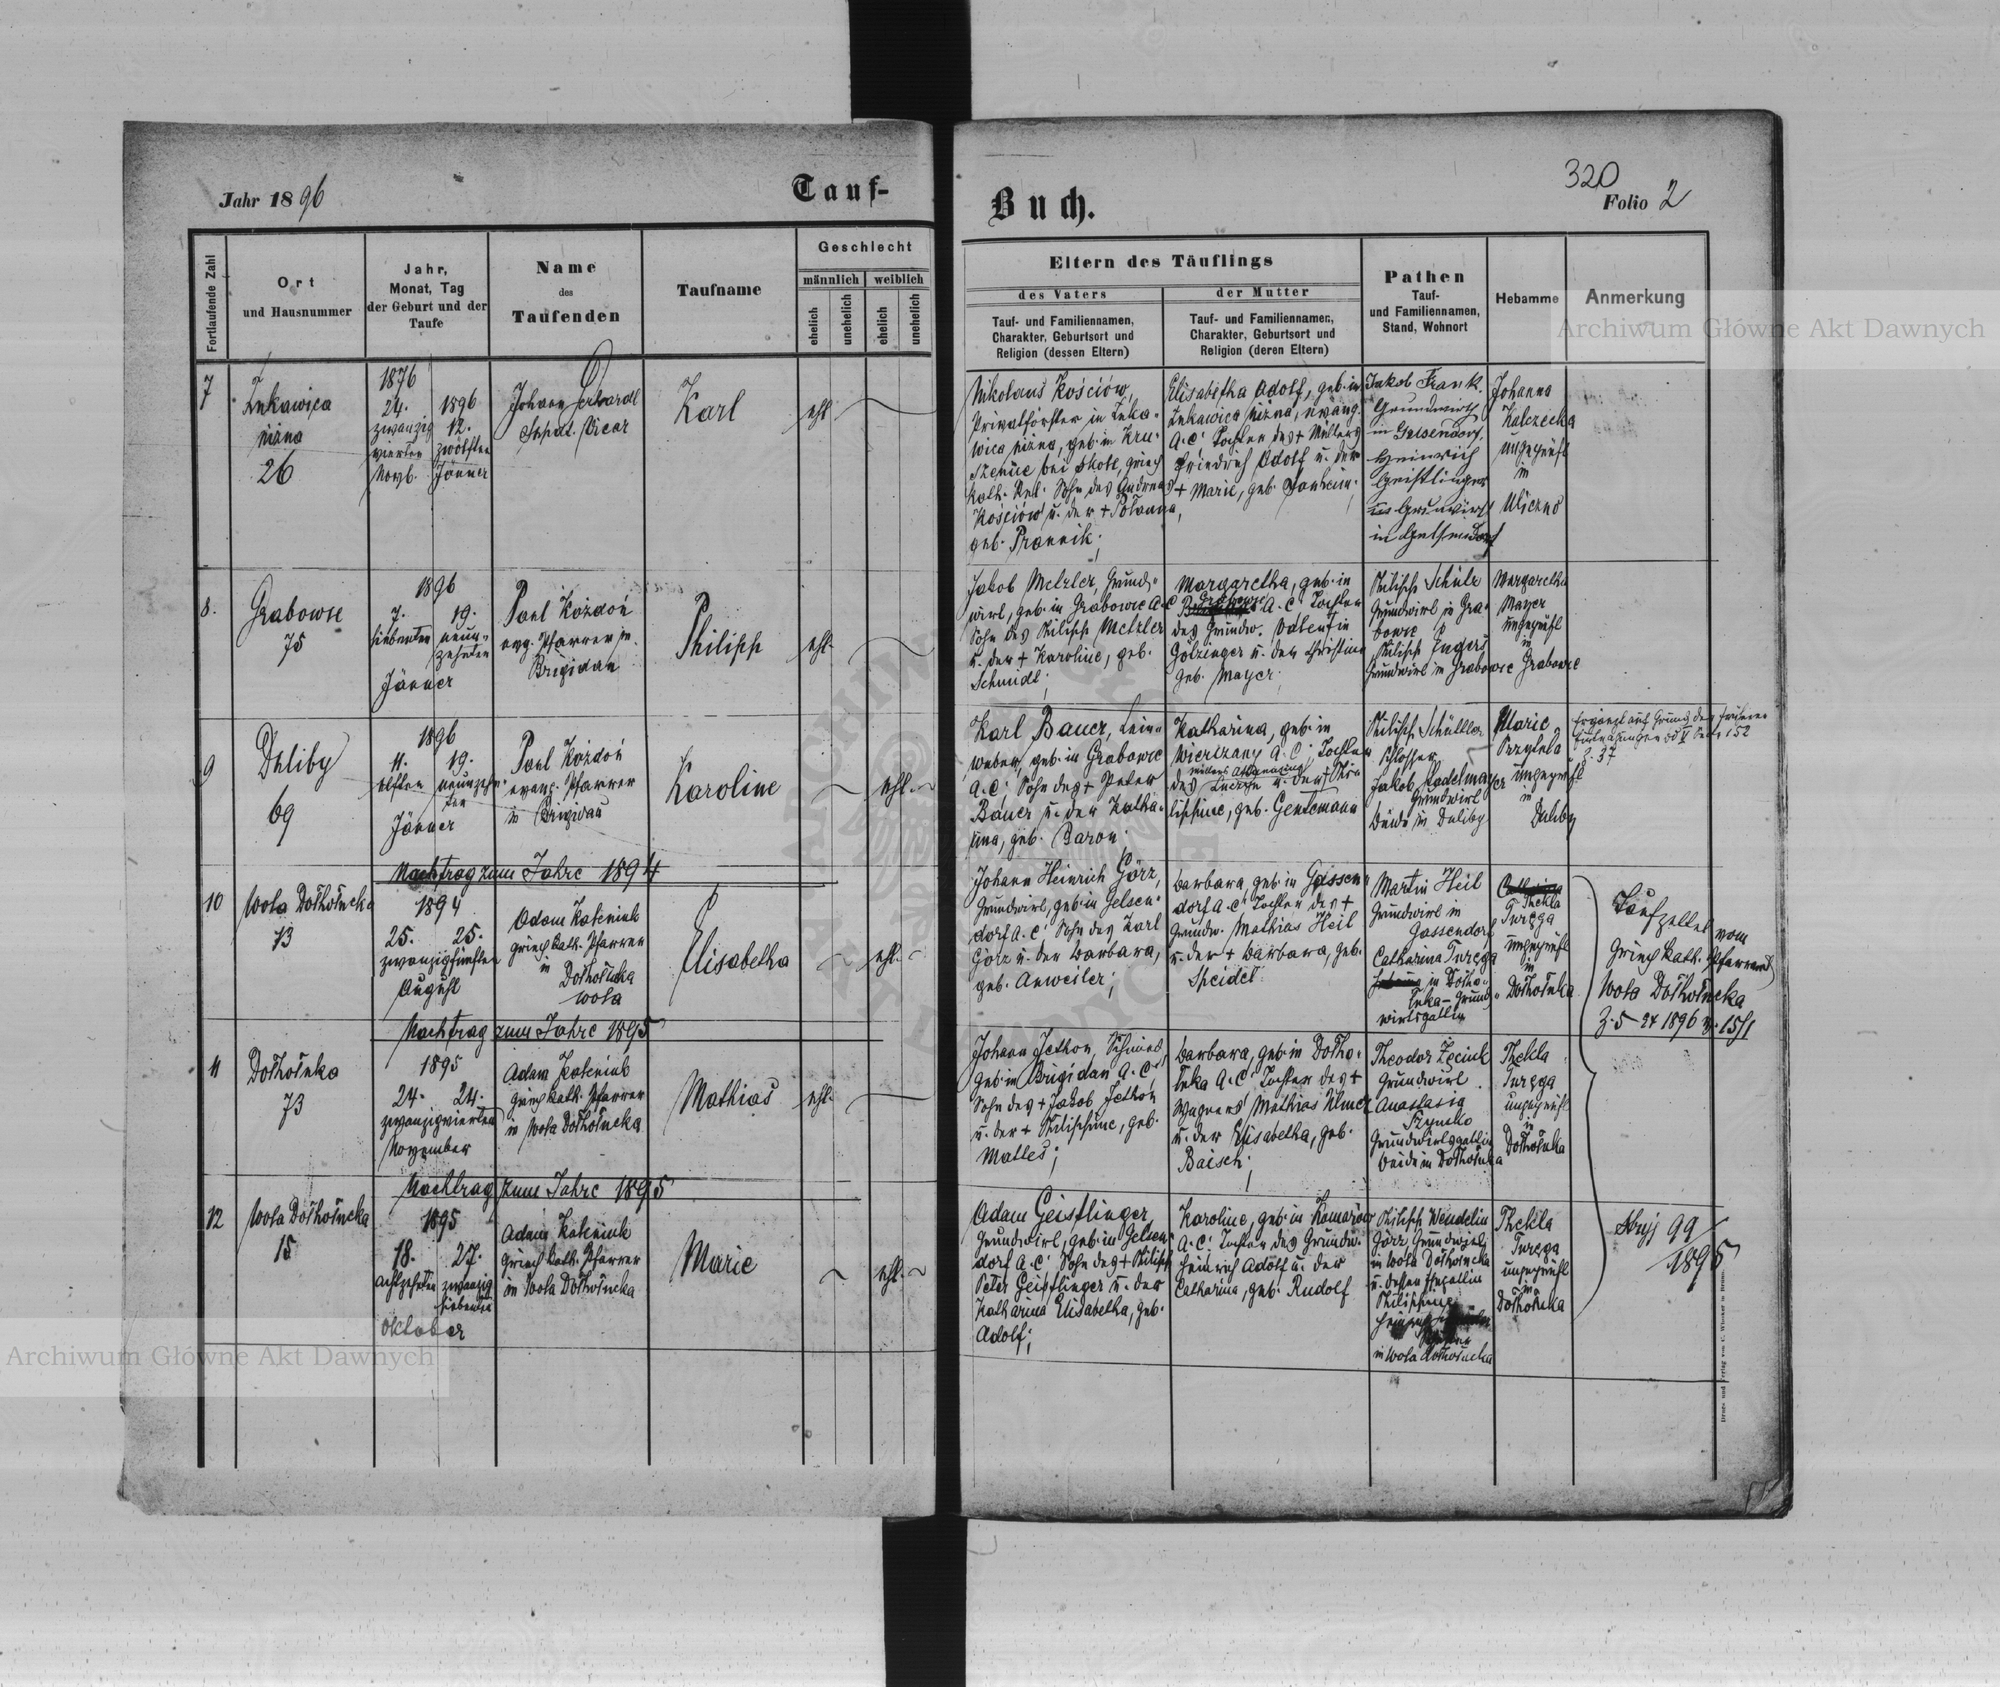 Jahr 1896
Tauf-
Buch.
320
Folio 2
Fortlaufende Zahl
Ort
und Hausnummer
Jahr,
Monat, Tag
der Geburt und der
Taufe
Name
des
Taufenden
Taufname
Geschlecht
männlich
weiblich
ehelich
unehelich
ehelich
unehelich
Eltern des Täuflings
des Vaters
der Mutter
Tauf- und Familiennamen,
Charakter, Geburtsort und
Religion (dessen Eltern)
Tauf- und Familiennamen,
Charakter, Geburtsort und
Religion (deren Eltern)
Pathen
Tauf-
und Familiennamen,
Stand, Wohnort
Hebamme
Anmerkung
7
Łukawica
niżna
26
24.
zwanzig
vierten
Novb.
1896
12.
zwölften
Jänner
Johann
Vicar
Karl
ehl.
Nikolaus Kościów,
Privatförster in Łuka-
wica niżna, geb. in Kru-
bei Skole, griech
kath. Rel. Sohn des Andreas
Kościów u. der +
geb.
Elisabetha Adolf, geb. in
Łukawica niżna, evang.
A.C. Tochter des + Müllers
Friedrich Adolf u. der
+ Marie, geb.
Jakob Frank
Grundwirth
in Gelsendorf.
Heinrich
Geistlinger
Grundwirth
in Gelsendorf
Johanna
ungeprüft
in
Uliczno
8.
Grabowce
75
1896
7.
siebenten
19.
neun-
zehnten
Jänner
Paul Kożdoń
evg. Pfarrer in
Brigidau
Philipp
ehl.
Jakob Metzler, Grund-
wirt, geb. in Grabowce A.C
Sohn des Philipp Metzler
u. der + Karoline, geb.
Schmidt;
Margaretha, geb. in
Grabowce
A.C. Tochter
des Grundw. Valentin
Götzinger u. der Christina
geb. Mayer;
Philipp Schulz
Grundwirt in Gra-
bowce
Philipp Engers
Grundwirt in Grabowce
Margaretha
Mayer
ungeprüft
in
Grabowce
9
Duliby
69
1896
11.
elften
19.
neunzehn-
ten
Jänner
Paul Kożdoń
evang. Pfarrer
in Brigidau
Karoline
ehl.
Karl Bauer, Lein-
weber, geb. in Grabowce
A.C. Sohn des + Peter
Bauer u. der Katha-
rina, geb. Baron.
Katharina, geb. in
Wierczany A.C. Tochter
des
u. der + Phi-
lippine, geb. Gentemann
Philipp Schüttler
Schlosser
Jakob Radelmayer
Grundwirt
beide in Duliby
Marie
Przytula
ungeprüft
in
Duliby
Ergänzt auf Grund der früheren
152
Z. 37
Nachtrag zum Jahre 1894
10
Wola Dołhołucka
73
1894
25.
25.
zwanzigfünften
August
Adam Kateniuk
griech kath. Pfarrer
in
Dołhołucka
wola
Elisabetha
ehl.
Johann Heinrich Görz,
Grundwirt, geb. in Gelsen-
dorf A.C. Sohn des Karl
Görz u. der Barbara,
geb. Anweiler;
Barbara, geb. in Gassen-
dorf A.C. Tochter des +
Grundw. Mathias Heil
u. der + Barbara, geb.
Speidel
Martin Heil
Grundwirt in
Gassendorf
Catharina Turęga
in Dołho-
łuka - Grund-
wirtsgattin
Thekla
Turęga
ungeprüft
in
Dołhołuka
Taufzettel vom
Griech kath. Pfarramt
Wola Dołhołucka
Nachtrag zum Jahre 1895
11
Dołhołuka
73
1895
24.
24.
zwanzigvierten
November
Adam Kateniuk
griech kath. Pfarrer
in Wola Dołhołucka
Mathias
ehl.
Johann Jethon, Schmied,
geb. in Brigidau A.C.
Sohn des + Jakob Jethon
u. der + Philippine, geb.
Malles;
Barbara, geb. in Dołho-
łuka A.C. Tochter des +
Wagners Mathias Ulmer
u. der Elisabetha, geb.
Baisch;
Theodor
Grundwirt.
Anastasia
Grundwirtsgattin
beide in Dołhołuka
Thekla
Turęga
ungeprüft
in
Dołhołuka
Nachtrag zum Jahre 1895
12
Wola Dołhołucka
15
1895
18.
achtzehnten
27.
zwanzig
siebenten
Oktober
Adam Kateniuk
Griech kath. Pfarrer
in Wola Dołhołucka
Marie
ehl.
Adam Geistlinger,
Grundwirt, geb. in Gelsen-
dorf A.C. Sohn des + Philipp
Peter Geistlinger u. der
Katharina Elisabetha, geb.
Adolf;
Karoline, geb. in Komarow
A.C. Tochter des Grundw.
Heinrich Adolf u. der
Catharina, geb. Rudolf
Philipp Wendelin
Görz Grundwirt
in Wola Dołhołucka
u. dessen Ehegattin
Philippine
in Wola Dołhołucka
Thekla
Turęga
ungeprüft
in
Dołhołuka
Stryj 99/
1895
Archiwum Główne Akt Dawnych
Archiwum Główne Akt Dawnych